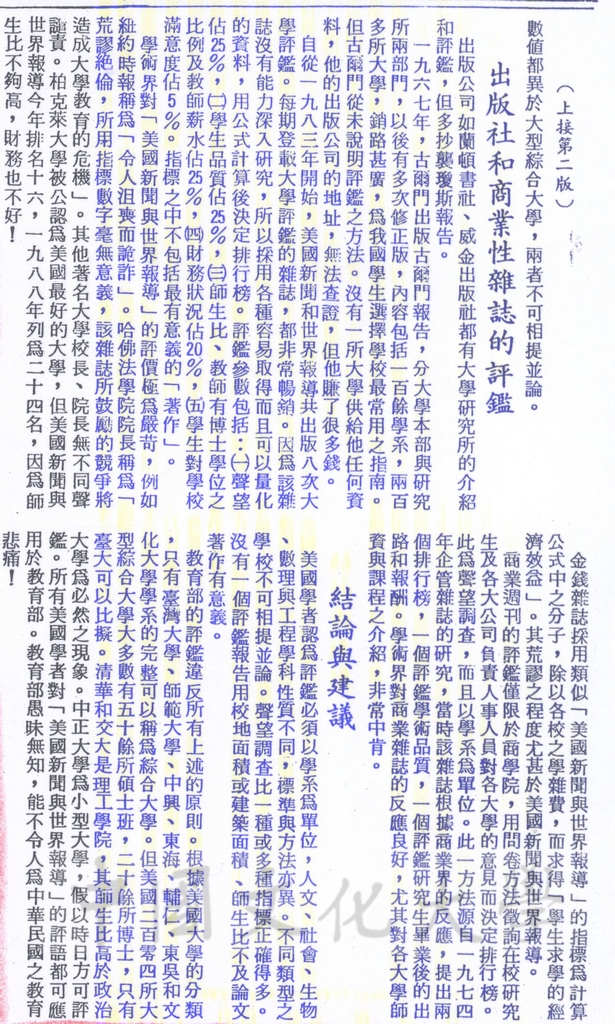 （上接第二版）
數值都異於大型綜合大學，兩者不可相提並論。
出版社和商業性雜誌的評鑑
出版公司如蘭頓書社、威金出版社都有大學研究所的介紹
和評鑑，但多抄襲瓊斯報告。
一九六七年，古爾門出版古爾門報告，分大學本部與研究
所兩部門，以後有多次修正版，內容包括一百餘學系，兩百
多所大學，銷路甚廣，爲我國學生選擇學校最常用之指南。
但古爾門從未說明評鑑之方法。沒有一所大學供給他任何資
料，他的出版公司的地址，無法查證，但他賺了很多錢。
自從一九八三年開始，美國新聞和世界報導共出版八次大
學評鑑。每期登載大學評鑑的雜誌，都非常暢銷。因爲該雜
誌沒有能力深入研究，所以採用各種容易取得而且可以量化
的資料，用公式計算後決定排行榜。評鑑參數包括：㈠聲望
佔25％，㈡學生品質佔25％，㈢師生比、教師有博士學位之
比例及教師薪水佔25％，㈣財務狀況佔20％，㈤學生對學校
滿意度佔5％。指標之中不包括最有意義的「著作」。
學術界對「美國新聞與世界報導」的評價極爲嚴苛，例如
紐約時報稱爲「令人沮喪而詭詐」。哈佛法學院院長稱爲「
荒謬絶倫，所用指標數字毫無意義，該雜誌所鼓勵的競爭將
造成大學教育的危機」。其他著名大學校長、院長無不同聲
譴責。柏克萊大學被公認爲美國最好的大學，但美國新聞與
世界報導今年排名十六，一九八八年列爲二十四名，因爲師
生比不夠高，財務也不好！
金錢雜誌採用類似「美國新聞與世界報導」的指標爲計算
公式中之分子，除以各校之學雜費，而求得「學生求學的經
濟效益」。其荒謬之程度尤甚於美國新聞與世界報導。
商業週刊的評鑑僅限於商學院，用問卷方法徵詢在校研究
生及各大公司負責人事人員對各大學的意見而決定排行榜。
此爲聲望調查，而且以學系爲單位。此一方法源自一九七四
年企管雜誌的研究，當時該雜誌根據商業界的反應，提出兩
個排行榜，一個評鑑學術品質，一個評鑑研究生畢業後的出
路和報酬。學術界對商業雜誌的反應良好，尤其對各大學師
資與課程之介紹，非常中肯。
結論與建議
美國學者認爲評鑑必須以學系爲單位，人文、社會、生物
、數理與工程學科性質不同，標準與方法亦異。不同類型之
學校不可相提並論。聲望調查比一種或多種指標正確得多。
沒有一個評鑑報告用校地面積或建築面積、師生比不及論文
著作有意義。
教育部的評鑑違反所有上述的原則。根據美國大學的分類
，只有臺灣大學、師範大學、中興、東海、輔仁、東吳和文
化大學學系的完整可以稱爲綜合大學。但美國二百零四所大
型綜合大學大多數有五十餘所碩士班，二十餘所博士，只有
臺大可以比擬。清華和交大是理工學院，其師生比高於政治
大學爲必然之現象。中正大學爲小型大學，假以時日方可評
鑑。所有美國學者對「美國新聞與世界報導」的評語都可應
用於教育部。教育部愚昧無知，能不令人爲中華民國之教育
悲痛！
中國文化大學